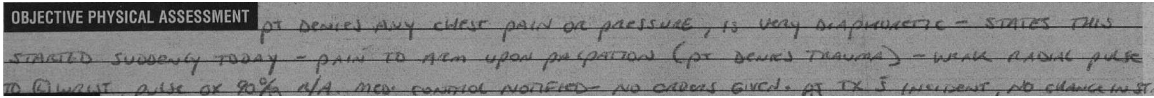 OBJECTIVE PHYSICAL ASSESSMENT PT DENIES ANY CHEST PAIN OR PRESSURE, IS VERY DIAPHORETIC - STATES THIS
STARTED SUDDENLY TODAY - PAIN TO ARM UPON PALPATION (PT DENIES TRAUMA) - WEAK RADIAL PULSE
TO Ⓛ WRIST. PULSE OX 90% R/A. MED CONTROL NOTIFIED - NO ORDERS GIVEN. PT TX S̄ INCIDENT, NO CHANGE IN ST.